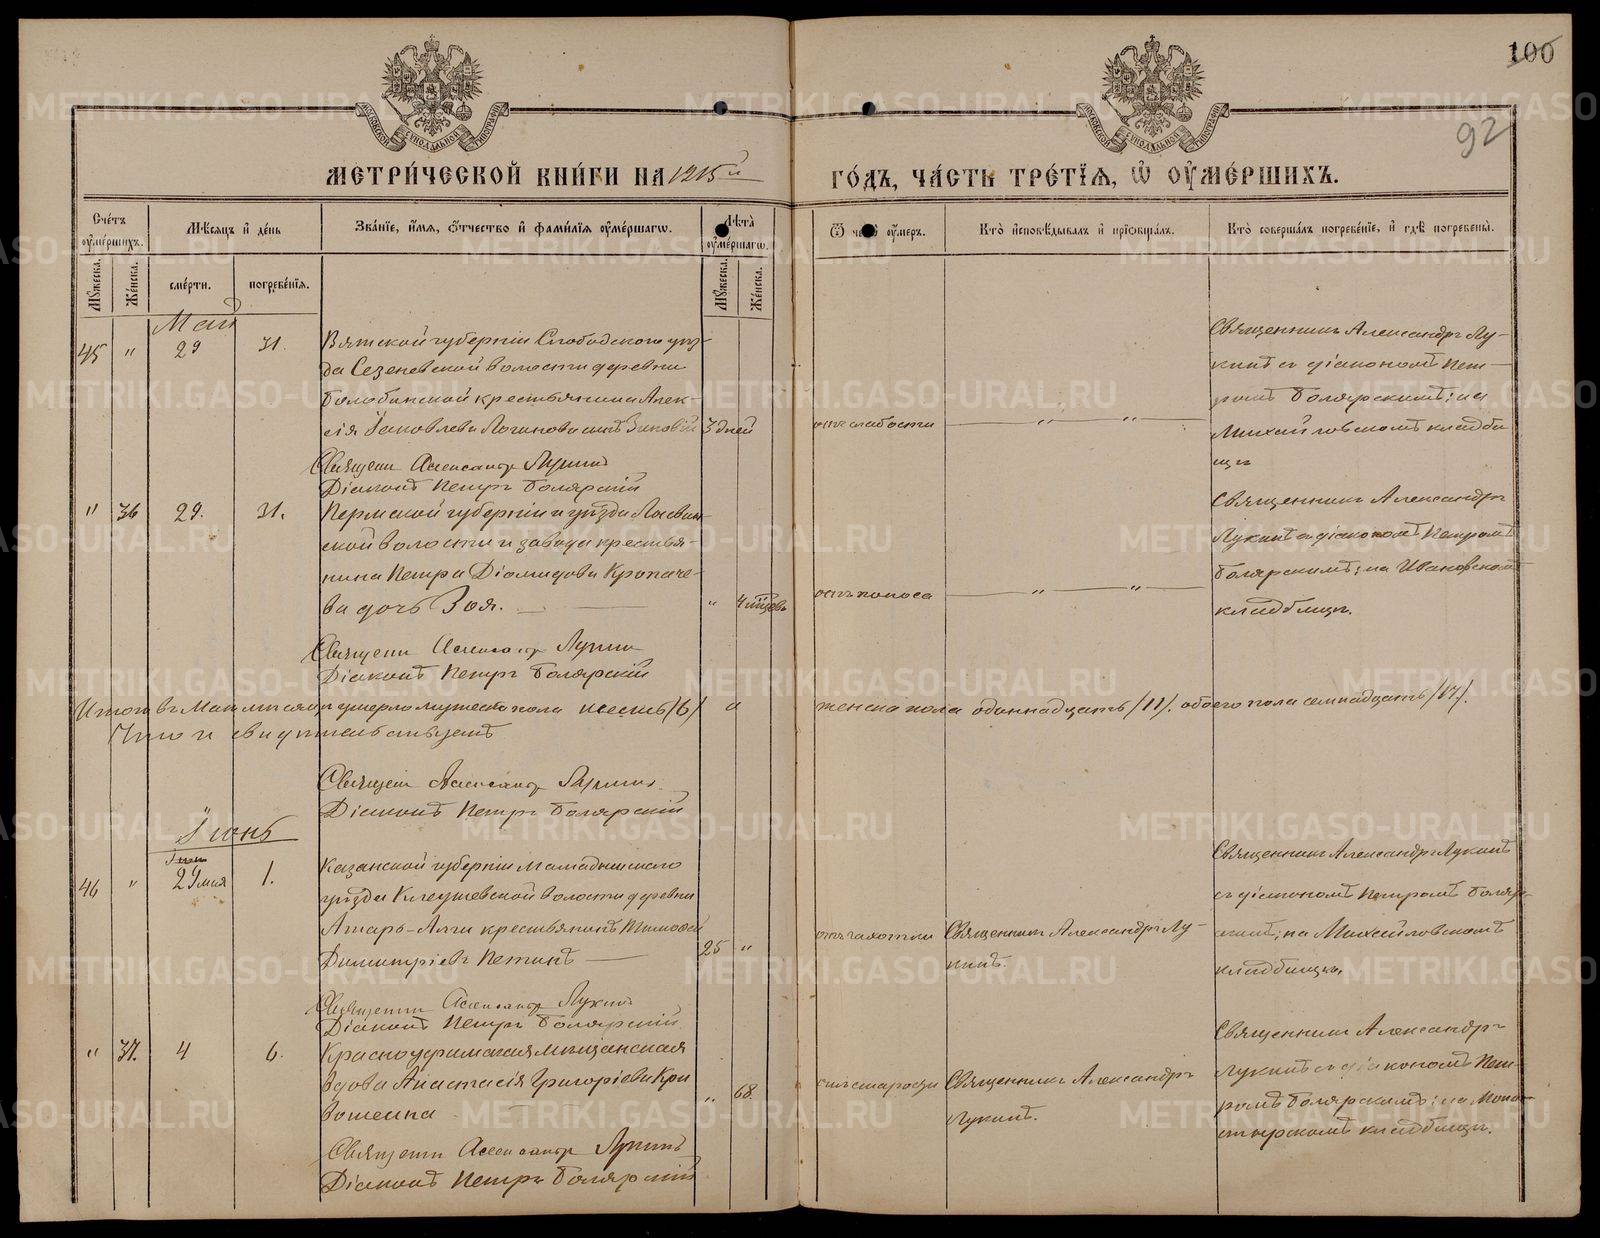 100
92
МЕТРИ́ЧЕСКОЙ КНИ́ГИ НА 1915й ГО́ДЪ, ЧА́СТЬ ТРЕ́ТІЯ, Ѡ ОУМЕ́РШИХЪ.
Сче́тъ оуме́ршихъ.
Му́жеска.
Же́нска.
Мѣ́сяцъ и де́нь
сме́рти.
погребе́нія.
Зва́ніе, и́мя, ѻ́тчество и фами́лія оуме́ршагѡ.
Лѣта̀ оуме́ршагѡ.
Му́жеска.
Же́нска.
Ѿ чегѡ̀ оу́меръ.
Кто̀ исповѣ́дывалъ и пріѡбща́лъ.
Кто̀ соверша́лъ погребе́ніе, и гдѣ̀ погребены̀.
Май
45 " 29 31.
Вятской губерніи Слободского уѣз-
да Сезеневской волости деревни
крестьянина Алек-
сія Іаковлева Логинова сынъ Зиновій 3 дней
отъ слабости
" "
Священникъ Александръ Лу-
кинъ съ діакономъ Пет-
ромъ Болярскимъ; на
Михайловскомъ кладби
щѣ
Священ Александр Лукинъ
Діаконъ Петръ Болярскій
" 36 29. 31.
Пермской губерніи и уѣзда Лысвен-
ской волости и завода крестья-
нина Петра Діомидова Кропаче-
ва дочь Зоя.
" 4 мѣсцовъ
отъ поноса
" "
Священникъ Александръ
Лукинъ съ діакономъ Петромъ
Болярскимъ; на Ивановскомъ
кладбищѣ.
Священ Александр Лукин
Діаконъ Петръ Болярскій
Итого въ Маѣ мѣсяцѣ умерло мужеска пола шесть /6/ а женска пола одиннадцать /11/. обоего пола семнадцать /17/.
Что и свидѣтельствуетъ
Священ Александр Лукинъ.
Діаконъ Петръ Болярскій
Іюнь
46 " 29 мая 1.
Казанской губерніи Мамадышскаго
уѣзда Кляушевской волости деревни
Атаръ-Алги крестьянинъ Тимофей
Димитріевъ Петинъ
25 "
отъ чахотки
Священникъ Александръ Лу-
кинъ.
Священникъ Александръ Лукинъ
съ діакономъ Петромъ Боляр-
скимъ; на Михайловскомъ
кладбищѣ.
Священн Александр Лукинъ
Діаконъ Петръ Болярскій
" 37. 4 6.
Красноуфимская мѣщанская
вдова Анастасія Григоріева Кри
вошеина
" 68.
отъ старости
Священникъ Александръ
Лукинъ.
Священникъ Александръ
Лукинъ съ діакономъ Пет-
ромъ Болярскимъ; на Мона-
стырскомъ кладбищѣ.
Священн Александр Лукинъ
Діаконъ Петръ Болярскій
METRIKI.GASO-URAL.RU